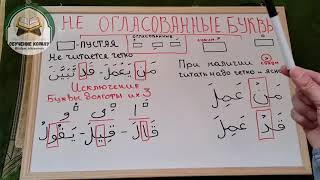 НЕ ОГЛАСОВАННЫЕ БУКВЫ
ОБУЧЕНИЕ КОРАНУ
ОГЛАСОВАННЫЕ
- ПУСТАЯ
Не читается четко
مَن يَعْمَلْ - قَد تَّبَيَّنَ
Исключение
Буквы долготы их 3
قَالَ - قِيلَ - يَقُولُ
сукун
При наличии
читать надо четко и ясно
مَنْ عَمِلَ
قَدْ عَمِلَ